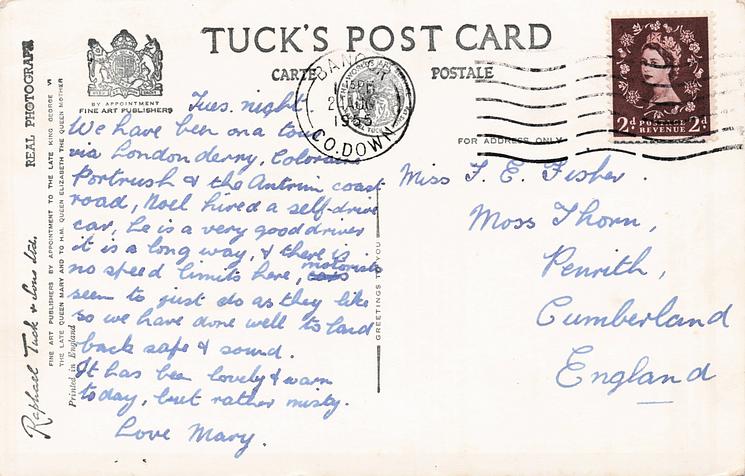 TUCK'S POST CARD
CARTE POSTALE
BY APPOINTMENT
FINE ART PUBLISHERS
REAL PHOTOGRAPH
Raphael Tuck & Sons Ltd.
FINE ART PUBLISHERS BY APPOINTMENT TO THE LATE KING GEORGE VI
THE LATE QUEEN MARY AND TO H.M. QUEEN ELIZABETH THE QUEEN MOTHER
Printed in England
BANGOR
1955
CO. DOWN
FOR ADDRESS ONLY
2d POSTAGE 2d
REVENUE
GREETINGS TO YOU
Tues. night.
We have been on a tour
via Londonderry, Coleraine
Portrush & the Antrim coast
road, Noel hired a self-drive
car, he is a very good driver
it is a long way, & there is
no speed limits here, motorists
seem to just do as they like
so we have done well to land
back safe & sound.
It has been lovely & warm
today, but rather misty.
Love Mary.
Miss F. E. Fisher.
Moss Thorn,
Penrith,
Cumberland
England